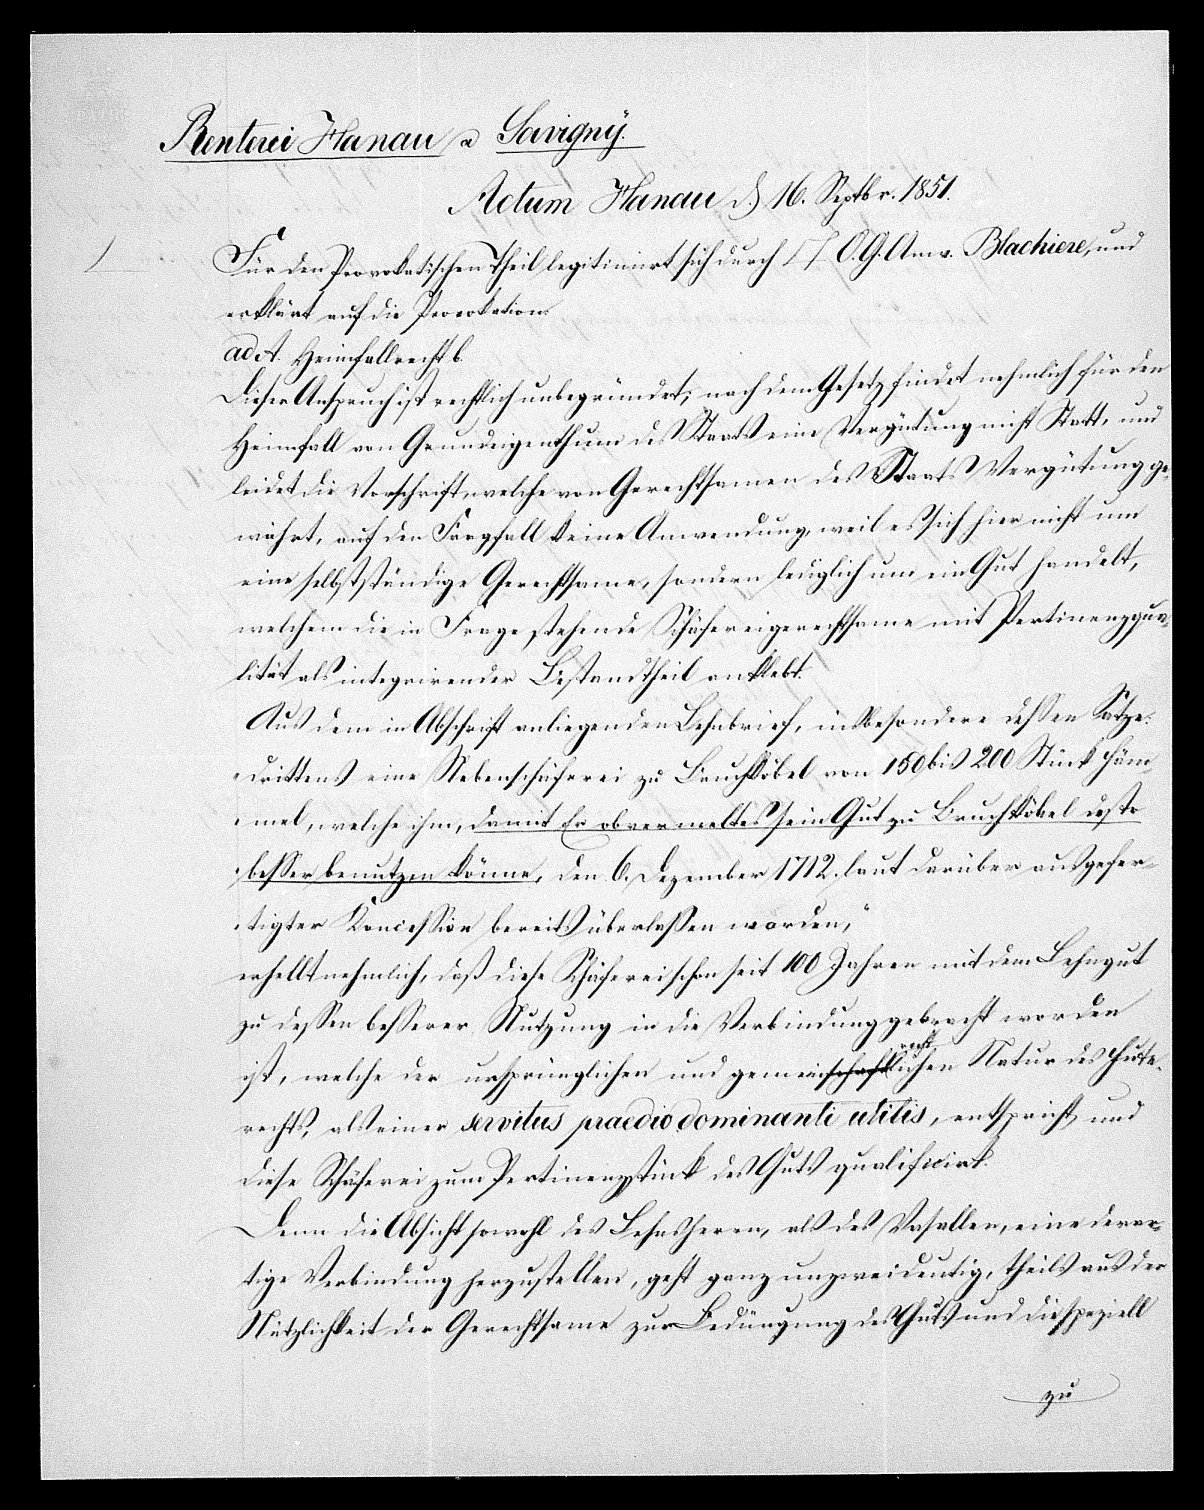 Renterei Hanau a Savigny.
Actum Hanau d. 16. Septbr. 1851.
Für den Provokatischen Theil legitimirt sich durch O.G. Anw. Blachiere, und
erklärt auf die Provokation
ad A. Heimfallrecht b.
Dieser Anspruch ist rechtlich unbegründet; nach dem Gesetz findet nehmlich für den
Heimfall von Grundeigenthum des Staats eine Vergütung nicht Statt, und
leidet die Vorschrift, welche von Gerechtsamen des Staats Vergütung ge-
währt, auf den Fragfall keine Anwendung, weil es sich hier nicht um
eine selbstständige Gerechtsame, sondern lediglich um ein Gut handelt,
welchem die in Frage stehende Schäfereigerechtsame mit Pertinenzqua-
lität als integrirender Bestandtheil anklebt.
Aus dem in Abschrift anliegenden Lehnbrief, insbesondere dessen Satze:
„drittens eine Nebenschäferei zu Bruchköbel von 150 bis 200 Stück Häm-
„mel, welche ihm, damit Er obvermeltes sein Gut zu Bruchköbel desto
„besser benutzen könne, den 6. Dezember 1712. laut darüber ausgefer-
„tigter Koncession bereits überlassen worden,“
erhellt nehmlich, daß diese Schäferei schon seit 100 Jahren mit dem Lehngut
zu dessen besserer Nutzung in die Verbindung gebracht worden
ist, welche der ursprünglichen und gemeinschaftlichen Natur des Hute-
recht
rechts, als einer servitus praedio dominanti utilis, entspricht, und
diese Schäferei zum Pertinenzstück des Guts qualificirt.
Denn die Absicht sowohl des Lehnsherrn, als des Vasallen, eine derar-
tige Verbindung herzustellen, geht ganz unzweideutig, theils aus der
Nützlichkeit der Gerechtsame zur Bedüngung des Guts und die speziell
zu